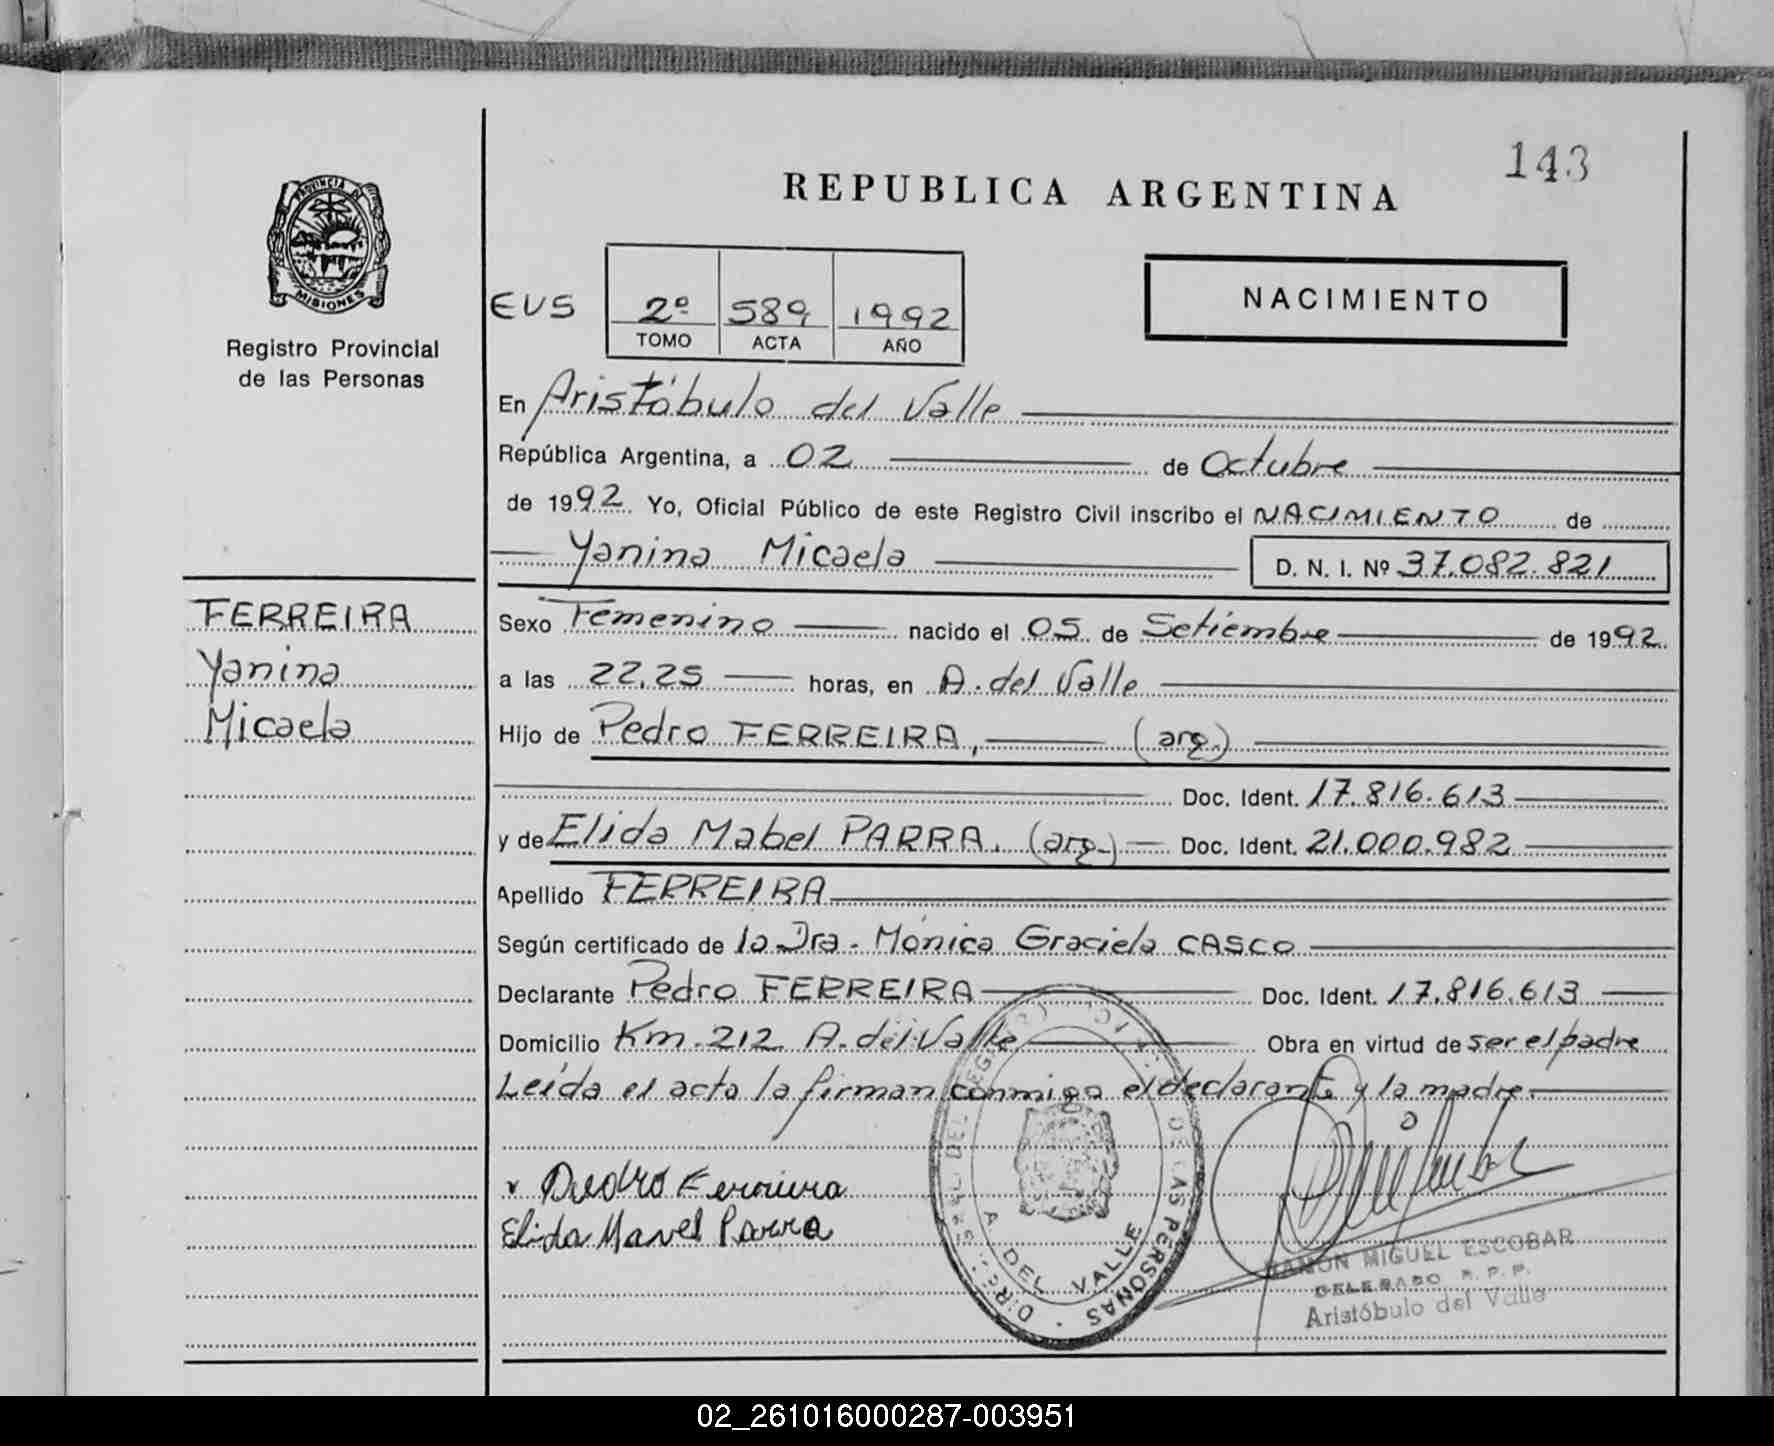 143
REPUBLICA ARGENTINA
PROVINCIA DE
MISIONES
Registro Provincial
de las Personas
EVS
2º 589 1992
TOMO ACTA AÑO
NACIMIENTO
En Aristóbulo del Valle
República Argentina, a 02 de Octubre
de 1992. Yo, Oficial Público de este Registro Civil inscribo el NACIMIENTO de
Yanina Micaela D. N. I. Nº 37.082.821
FERREIRA
Yanina
Micaela
Sexo Femenino nacido el 05 de Setiembre de 1992.
a las 22.25 horas, en A. del Valle
Hijo de Pedro FERREIRA, (arg.)
Doc. Ident. 17.816.613
y de Elida Mabel PARRA. (arg.) Doc. Ident. 21.000.982
Apellido FERREIRA
Según certificado de la Dra. Mónica Graciela CASCO
Declarante Pedro FERREIRA Doc. Ident. 17.816.613
Domicilio Km. 212 A. del Valle Obra en virtud de ser el padre
Leída el acta la firman conmigo el declarante y la madre.
Elida Mavel Parra
DEL REGISTRO DE LAS PERSONAS
A. DEL VALLE
RAMON MIGUEL ESCOBAR
DELEGADO R. P. P.
Aristóbulo del Valle
02_261016000287-003951